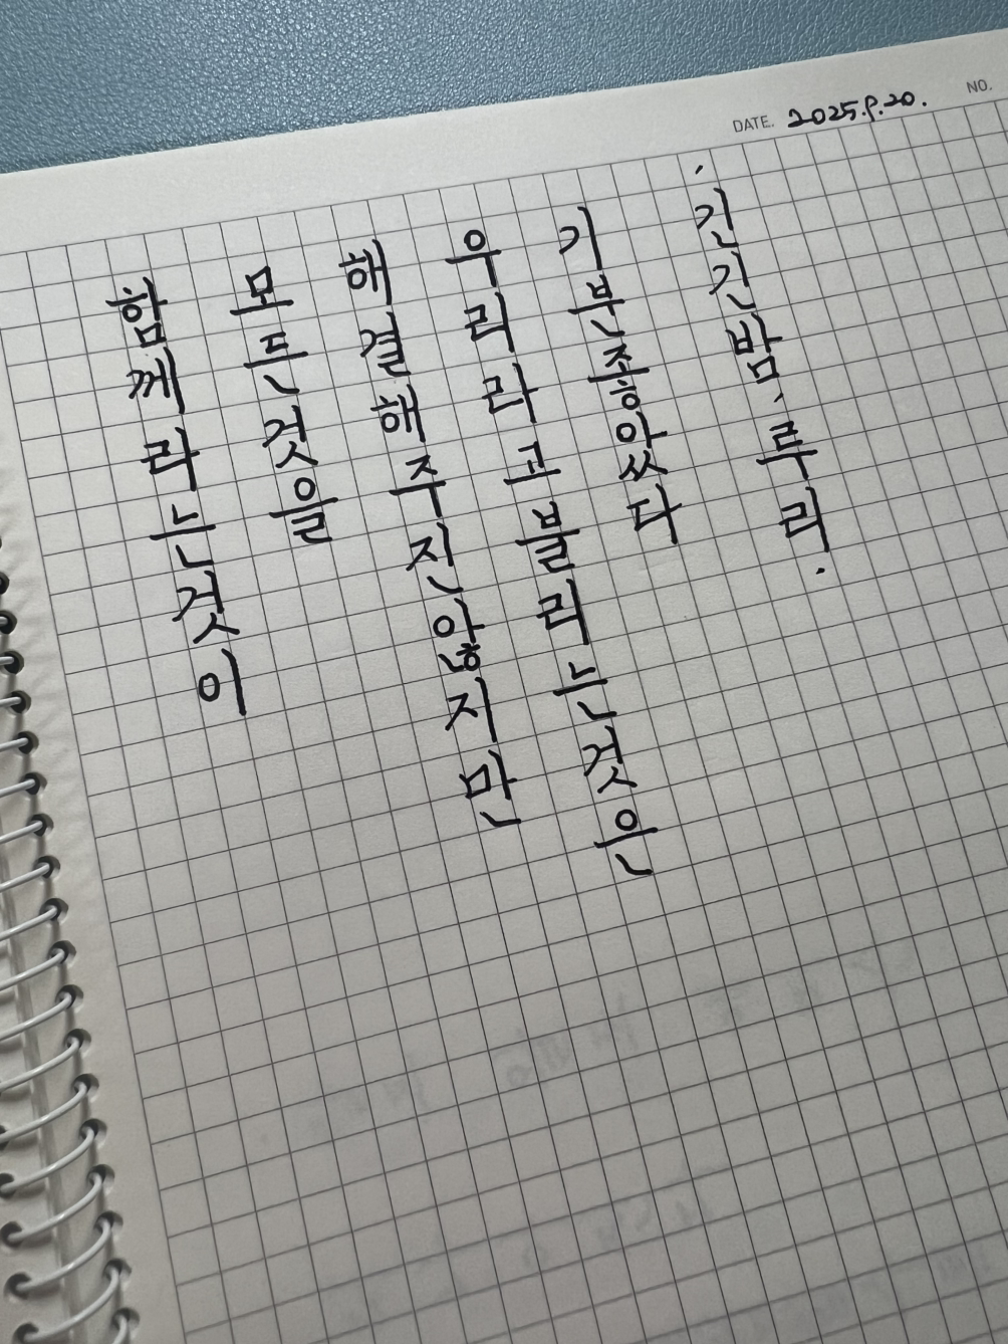 DATE. 2025.9.20. NO.
함께라는것이
모든것을
해결해주진않지만
우리라고불리는것은
기분좋았다
'긴긴밤' 루리.